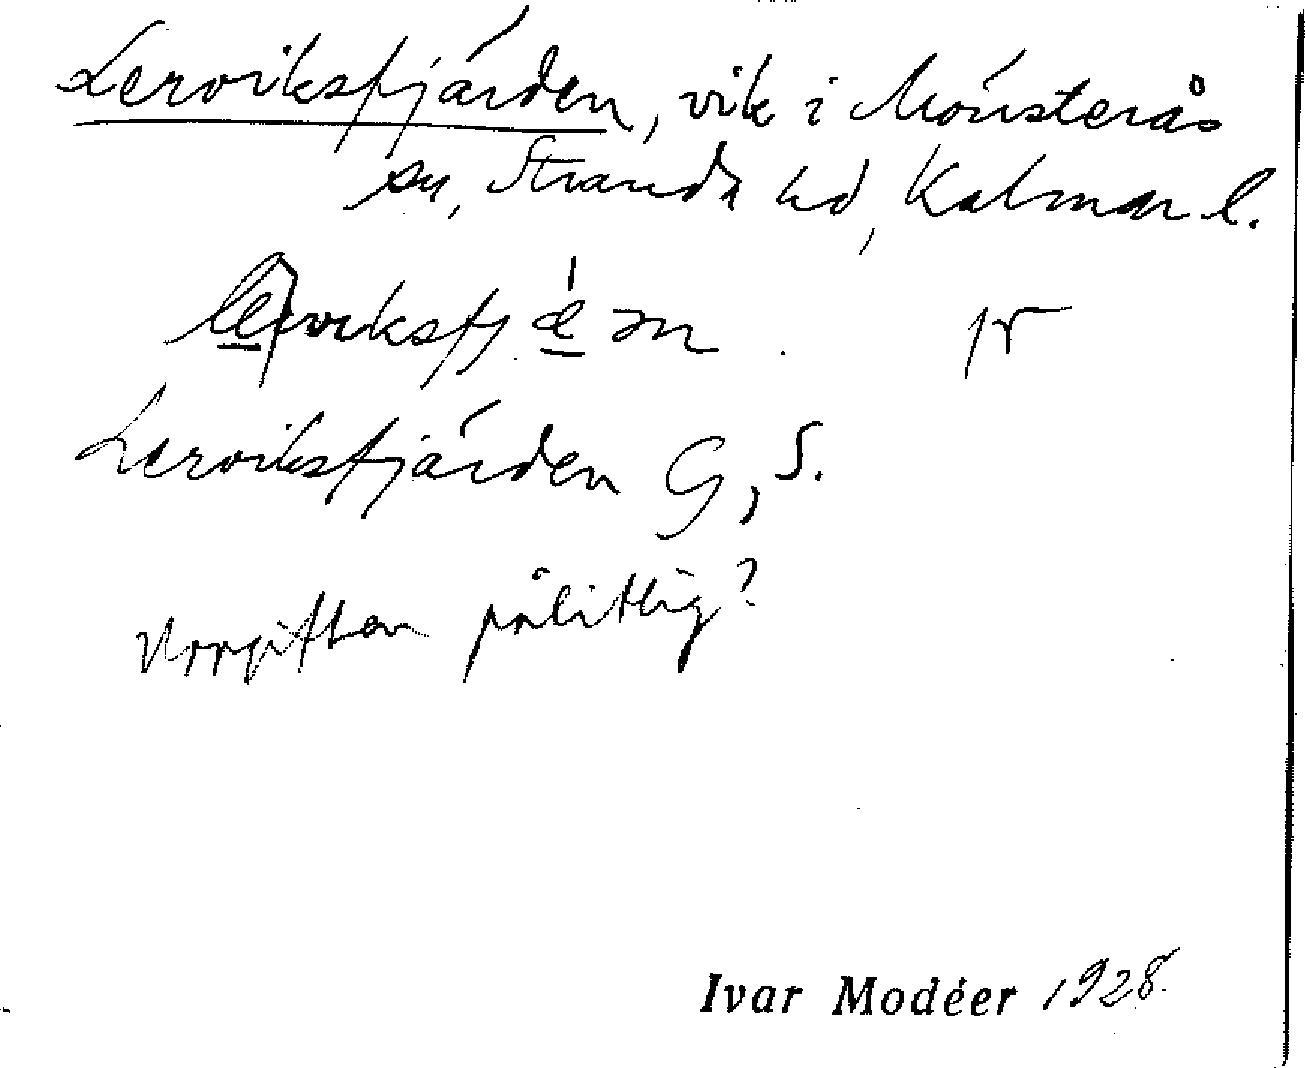 Lerviksfjärden, vik i Mönsterås
sn, Stranda hd, Kalmar l.
lerviksfjǽ̱ən pr
Lerviksfjärden G, S.
Uppgiften pålitlig?
Ivar Modéer 1928